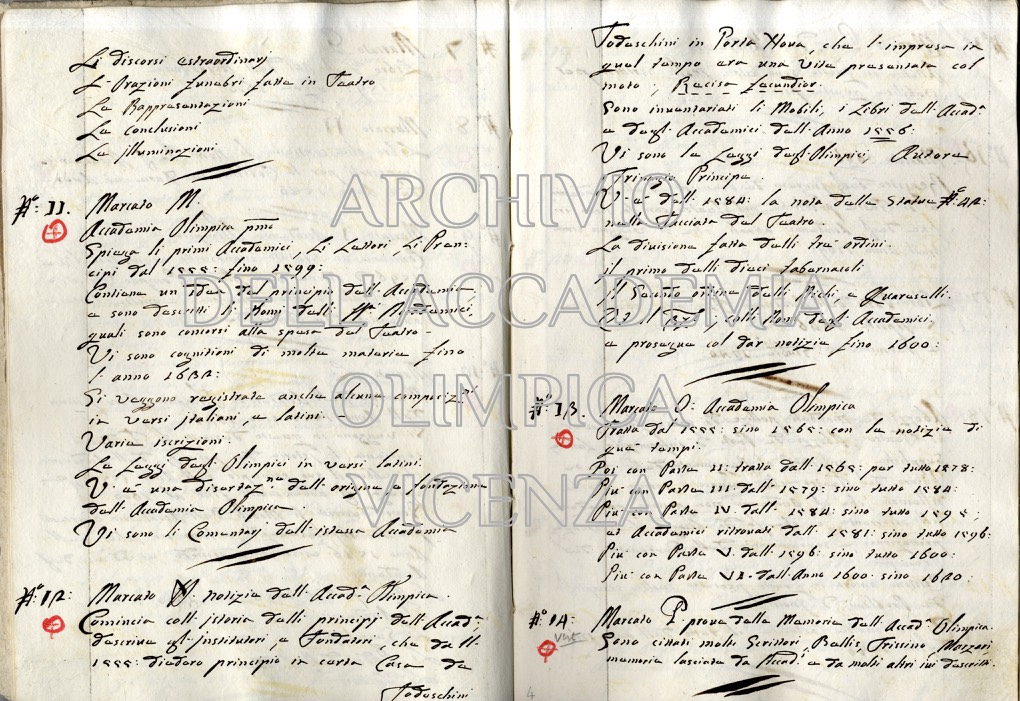 Li discorsi estraordinarj
L'Orazioni funebri fatte in Teatro
Le Rappresentazioni
Le conclusioni
Le illuminazioni
N.° 11. Marcato M.
Accademia Olimpica pmo
Spiega li primi Accademici, Li Lettori, Li Pren-
cipi dal 1555: fino 1599:
Contiene un Idea del principio dell'Accademia
e sono descritti li Nomi delli Accademici,
quali sono concorsi alla spesa del Teatro -
Vi sono cognitioni di molta materia fino
l'anno 1632:
Si veggono registrate anche alcune
in versi jtaliani, e latini. -
Varie iscrizioni.
Le Leggi degl'Olimpici in versi latini.
V'è una disertaz.ne dell'origine e fondazione
dell'Accademia Olimpica.
Vi sono li Comentarj dell'istessa Accademia
N.° 12: Marcato N. notizie dell'Accad.a Olimpica.
Comincia coll'jstoria delli principj dell'Accad.a
descrive gl'Institutori, e Fondatori, che dell'
1555: diedero principio in certa Casa de
Todeschini
Todeschini in Porta Nova, che l'impresa in
quel tempo era una Vite presentata col
moto; Recisa Fecundior.
Sono inventariati li Mobili, i Libri dell'Accad.a
e degl'Accademici dell'Anno 1556:
Vi sono le Leggi degl'Olimpici Autore
Principe.
V'è dell'1584: la nota delle Statue N.° 42:
nella facciata del Teatro.
La divisione fatta delli tre ordini.
il primo delli dieci tabernacoli
Il Secondo ordine delli Nichi, e Quareselli.
Et il colli Nomi degl'Accademici,
e prosegue col dar notizie fino 1600:
N.° 13. Marcato O: Accademia Olimpica
Tratta dal 1555: sino 1565: con le notizie di
que' tempi.
Poi con Parte II: tratta dall'1565: per tutto 1578:
Più con Parte III dall'1579: sino tutto 1584:
Più con Parte IV. dall'1584: sino tutto 1595;
et Accademici ritrovati dall'1581: sino tutto 1596:
Più con Parte V. dall'1596: sino tutto 1600:
Più con Parte VI. dall'Anno 1600: sino 1620:
N.° 14: Marcato P. prove delle Memorie dell'Accad.a Olimpica.
Sono citati molti Scrittori, Trissino, Marzari
memorie lasciate da Accad.i e da molti altri ivi descritti.
4
ARCHIVIO
DELL'ACCADEMIA
OLIMPICA
VICENZA